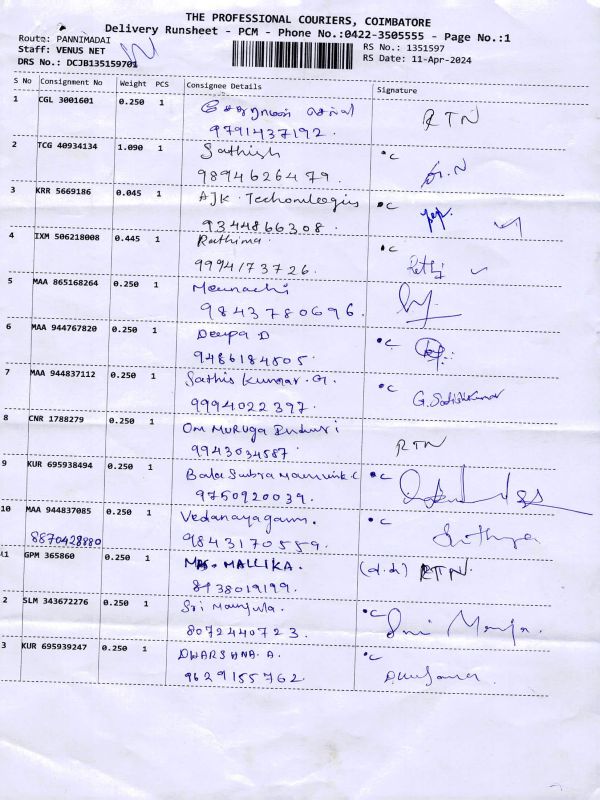 THE PROFESSIONAL COURIERS, COIMBATORE
Delivery Runsheet - PCM - Phone No.:0422-3505555 - Page No.:1
Route: PANNIMADAI
RS No.: 1351597
Staff: VENUS NET
RS Date: 11-Apr-2024
DRS No.: DCJB135159701
S No Consignment No Weight PCS Consignee Details Signature
1 CGL 3001601 0.250 1 RTN
9791437192.
2 TCG 40934134 1.090 1 Sathish °C
9894626479.
3 KRR 5669186 0.045 1 AJK. °C
9344866308.
4 IXM 506218008 0.445 1 Rathima. °C
9994173726.
5 MAA 865168264 0.250 1 Meenachi
9843780696.
6 MAA 944767820 0.250 1 Deepa D °C
9486184505.
7 MAA 944837112 0.250 1 Sathis Kumar. G. °C G. Sathishkumar
9994022397.
8 CNR 1788279 0.250 1 Om Muruga RTN
9943034587.
9 KUR 695938494 0.250 1 Bala Subra °C
9750920039.
10 MAA 944837085 0.250 1 Vedanayagam. °C
8870428880 9843170559.
11 GPM 365860 0.250 1 MALLIKA. (d.d) RTN.
8438019199.
2 SLM 343672276 0.250 1 Sri Manjula. °C
8072440723.
3 KUR 695939247 0.250 1 DWARSHNA. A. °C
9629155762.